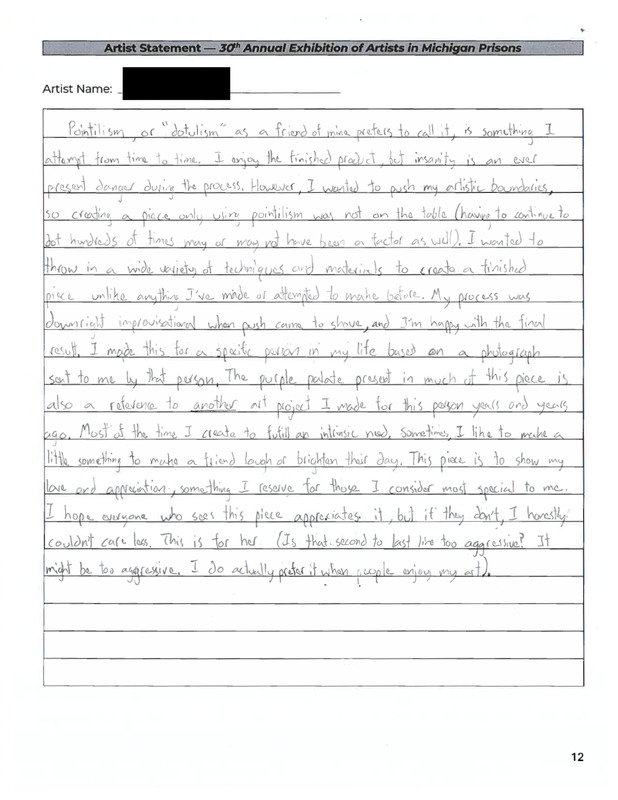 Artist Statement — 30th Annual Exhibition of Artists in Michigan Prisons
Artist Name:
Pointilism, or "dotulism" as a friend of mine prefers to call it, is something I
attempt from time to time. I enjoy the finished product, but insanity is an ever
present danger during the process. However, I wanted to push my artistic boundaries,
so creating a piece only using pointilism was not on the table (having to continue to
dot hundreds of times may or may not have been a factor as well). I wanted to
throw in a wide variety of techniques and materials to create a finished
piece unlike anything I've made or attempted to make before. My process was
downright improvisational when push came to shove, and I'm happy with the final
result. I made this for a specific person in my life based on a photograph
sent to me by that person. The purple palate present in much of this piece is
also a reference to another art project I made for this person years and years
ago. Most of the time I create to fulfill an intrinsic need. Sometimes, I like to make a
little something to make a friend laugh or brighten their day. This piece is to show my
love and appreciation, something I reserve for those I consider most special to me.
I hope everyone who sees this piece appreciates it, but if they don't, I honestly
couldn't care less. This is for her (Is that second to last line too aggressive? It
might be too aggressive. I do actually prefer it when people enjoy my art).
12